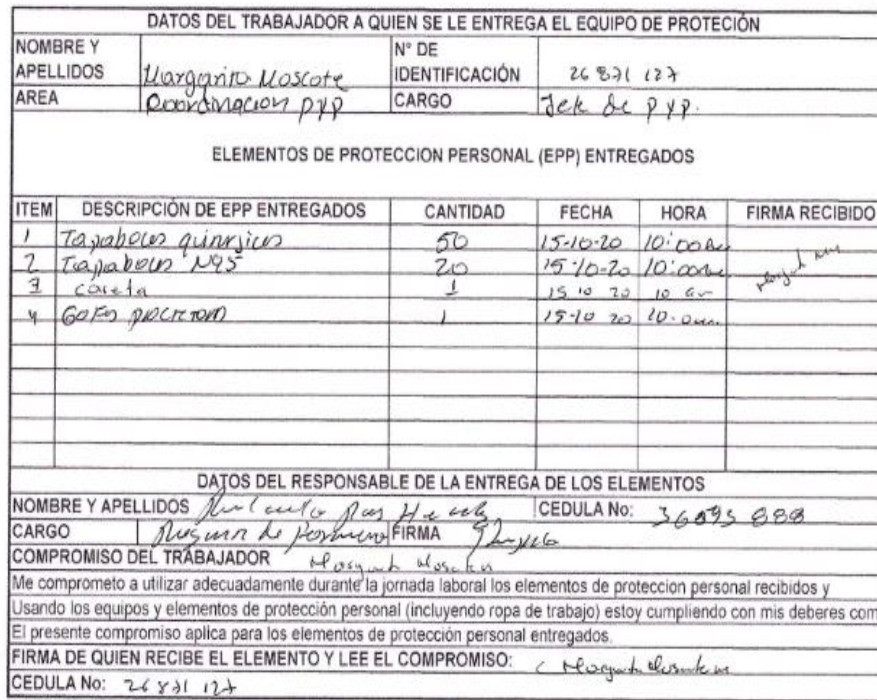 DATOS DEL TRABAJADOR A QUIEN SE LE ENTREGA EL EQUIPO DE PROTECIÓN
NOMBRE Y APELLIDOS Margarita Moscote N° DE IDENTIFICACIÓN 26 871 127
AREA Coordinacion pyp CARGO Jefe de pyp.
ELEMENTOS DE PROTECCION PERSONAL (EPP) ENTREGADOS
ITEM DESCRIPCIÓN DE EPP ENTREGADOS CANTIDAD FECHA HORA FIRMA RECIBIDO
1 Tapabocas 50 15-10-20 10:00
2 Tapabocas N95 20 15-10-20 10:00
3 careta 1 15 10 20 10
4 1 15-10 20 10:
DATOS DEL RESPONSABLE DE LA ENTREGA DE LOS ELEMENTOS
NOMBRE Y APELLIDOS CEDULA No: 36695 888
CARGO de FIRMA
COMPROMISO DEL TRABAJADOR
Me comprometo a utilizar adecuadamente durante la jornada laboral los elementos de proteccion personal recibidos y
Usando los equipos y elementos de protección personal (incluyendo ropa de trabajo) estoy cumpliendo con mis deberes com
El presente compromiso aplica para los elementos de protección personal entregados.
FIRMA DE QUIEN RECIBE EL ELEMENTO Y LEE EL COMPROMISO:
CEDULA No: 26 871 127